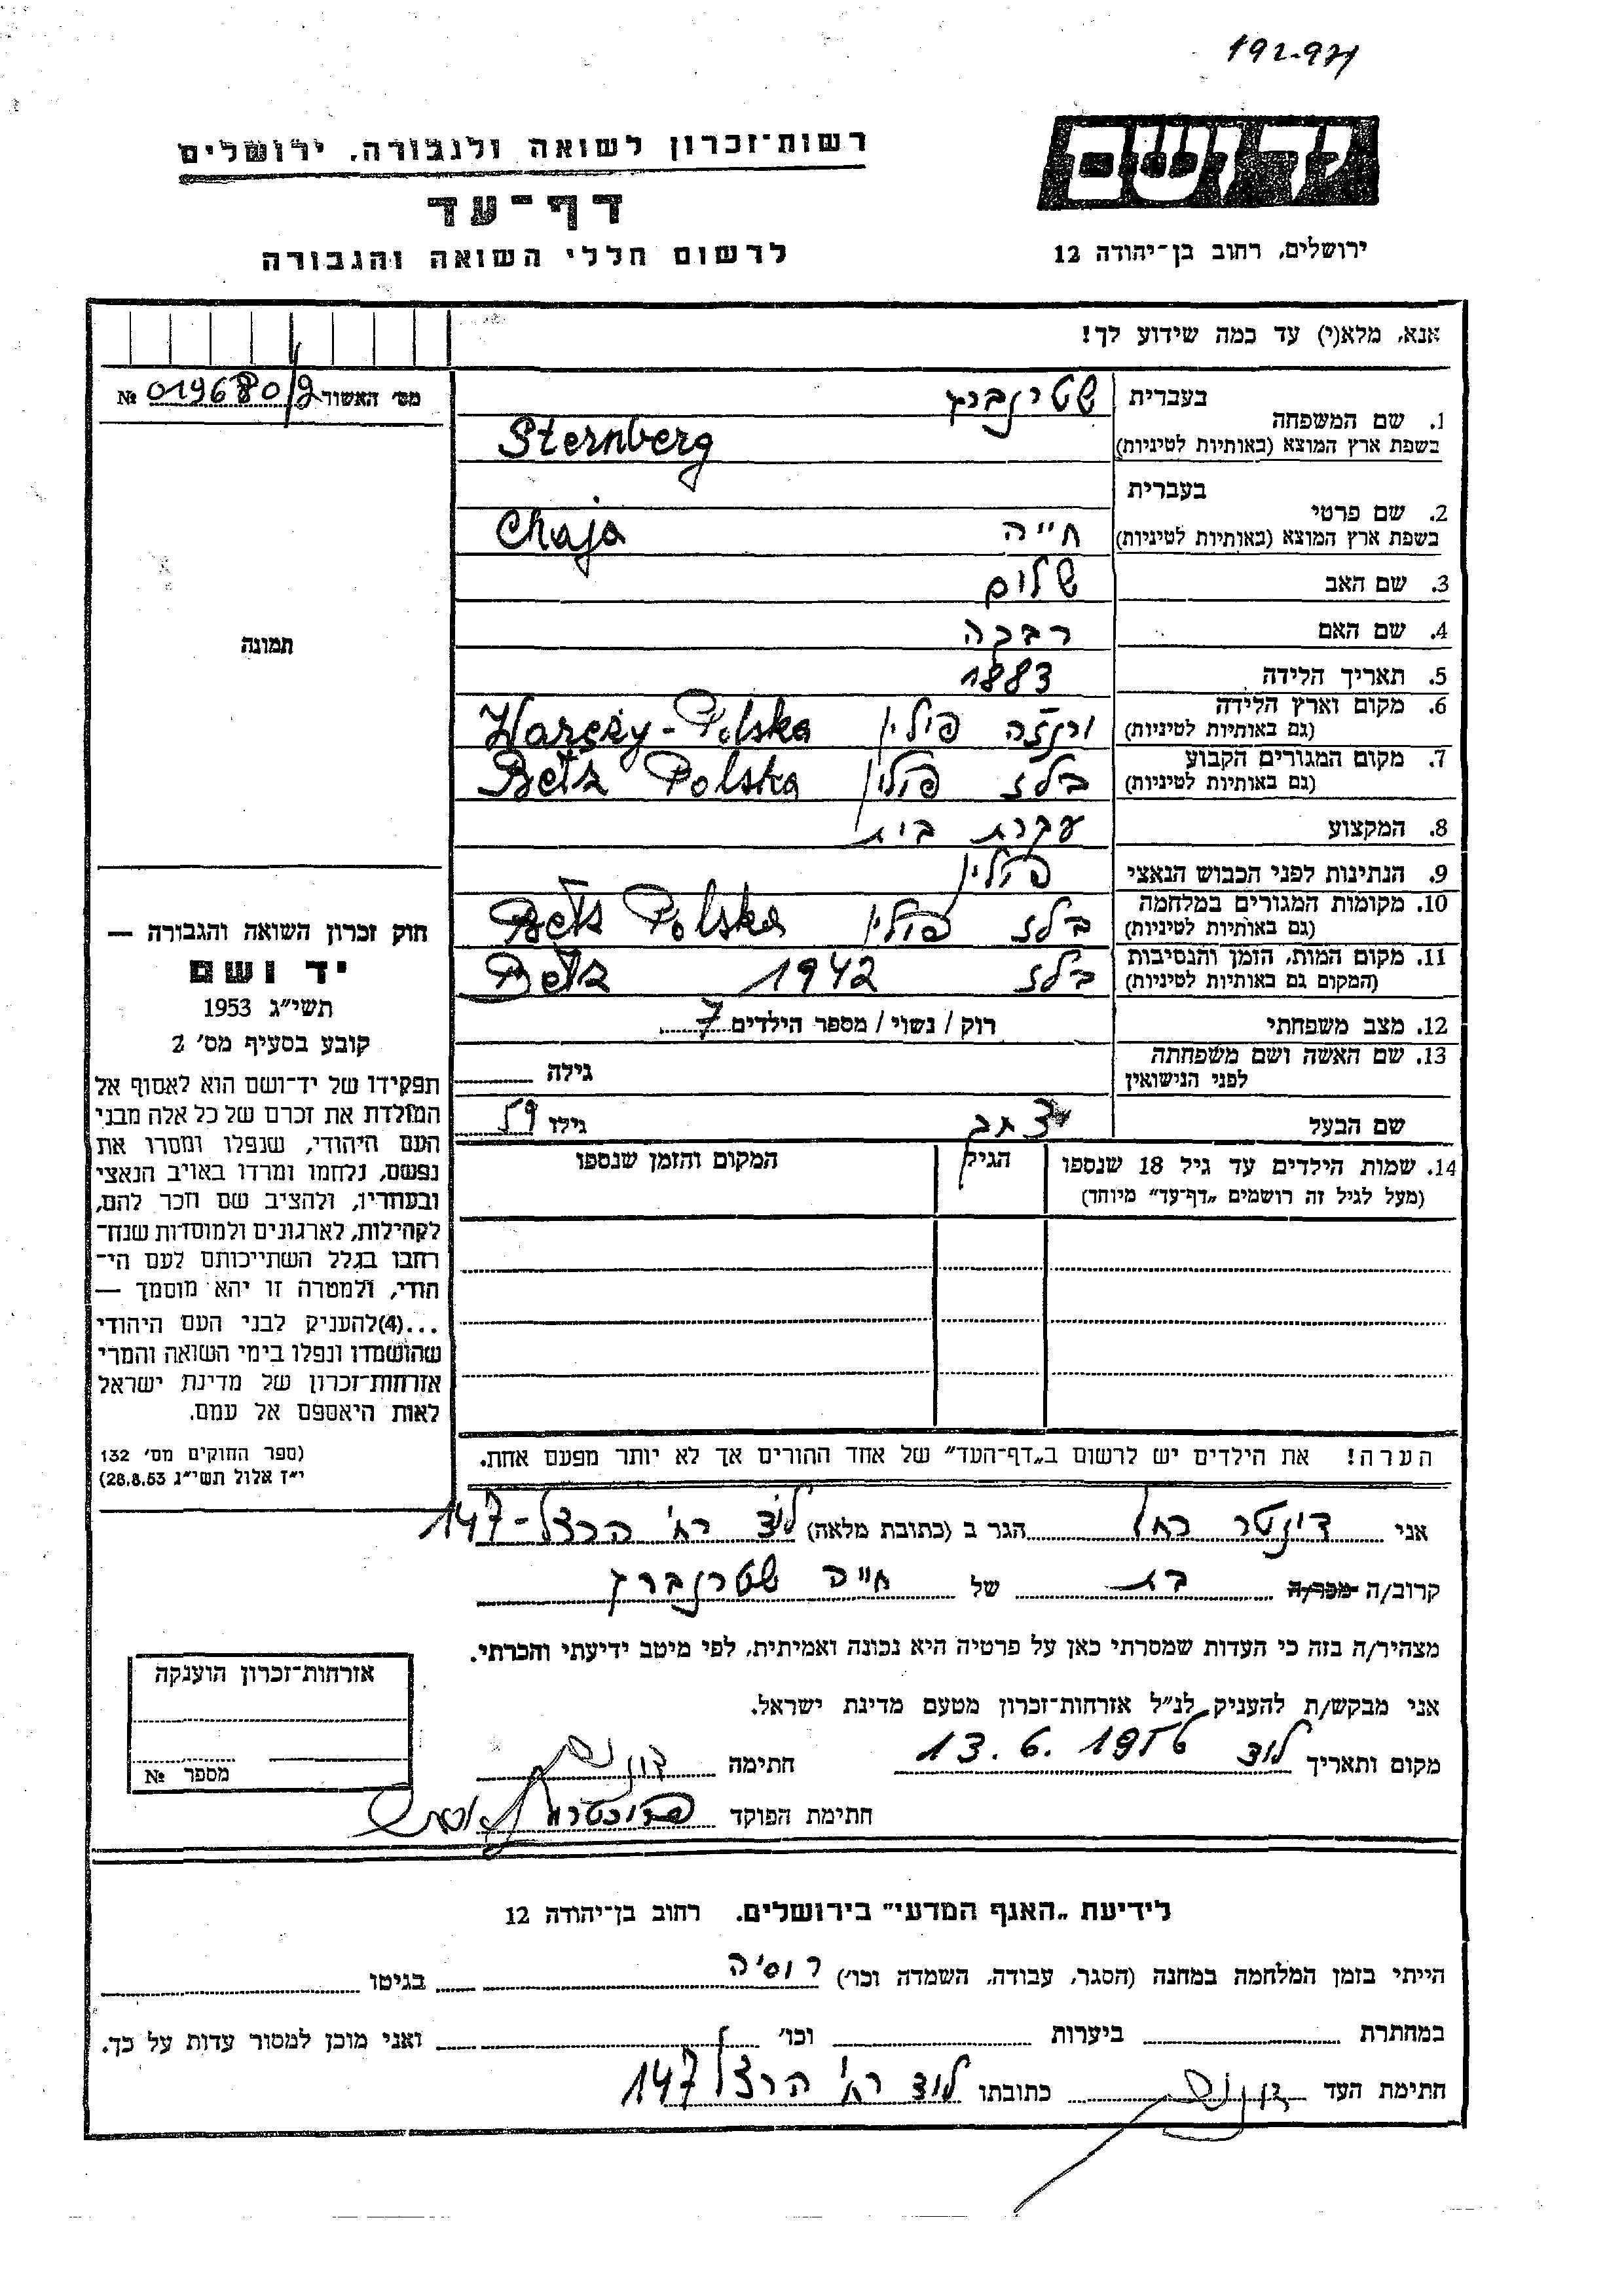 192-971
יד ושם
רשות־זכרון לשואה ולגבורה, ירושלים
דף־עד
לרשום חללי השואה והגבורה
ירושלים, רחוב בן־יהודה 12
אנא, מלא(י) עד כמה שידוע לך!
מס׳ האשור № 019680/9
1. שם המשפחה
בעברית שטרנברג
בשפת ארץ המוצא (באותיות לטיניות) Sternberg
2. שם פרטי
בעברית
בשפת ארץ המוצא (באותיות לטיניות) חייה Chaja
3. שם האב שלום
4. שם האם רבקה
5. תאריך הלידה 1883
6. מקום וארץ הלידה
(גם באותיות לטיניות) פולין Polska
7. מקום המגורים הקבוע
(גם באותיות לטיניות) בלז פולין Bełz Polska
8. המקצוע עקרת בית
9. הנתינות לפני הכבוש הנאצי פולין
10. מקומות המגורים במלחמה
(גם באותיות לטיניות) בלז פולין Bełz Polska
11. מקום המות, הזמן והנסיבות
(המקום גם באותיות לטיניות) בלז 1942 Bełz
12. מצב משפחתי רוק / נשוי / מספר הילדים 7
13. שם האשה ושם משפחתה
לפני הנישואין גילה
שם הבעל גילו 59
14. שמות הילדים עד גיל 18 שנספו הגיל המקום והזמן שנספו
(מעל לגיל זה רושמים „דף־עד” מיוחד)
הערה! את הילדים יש לרשום ב„דף־העד” של אחד ההורים אך לא יותר מפעם אחת.
תמונה
חוק זכרון השואה והגבורה —
יד ושם
תשי״ג 1953
קובע בסעיף מס׳ 2
תפקידו של יד־ושם הוא לאסוף אל
המולדת את זכרם של כל אלה מבני
העם היהודי, שנפלו ומסרו את
נפשם, נלחמו ומרדו באויב הנאצי
ובעוזריו, ולהציב שם וזכר להם,
לקהילות, לארגונים ולמוסדות שנח־
רבו בגלל השתייכותם לעם הי־
הודי, ולמטרה זו יהא מוסמך —
...(4)להעניק לבני העם היהודי
שהושמדו ונפלו בימי השואה והמרי
אזרחות־זכרון של מדינת ישראל
לאות היאספם אל עמם.
(ספר החוקים מס׳ 132
י״ז אלול תשי״ג 28.8.53)
אני רחל הגר ב (כתובת מלאה) לוד רח׳ הרצל - 147
קרוב/ה מכר/ה בת של חייה שטרנברג
מצהיר/ה בזה כי העדות שמסרתי כאן על פרטיה היא נכונה ואמיתית, לפי מיטב ידיעתי והכרתי.
אני מבקש/ת להעניק לנ״ל אזרחות־זכרון מטעם מדינת ישראל.
מקום ותאריך לוד 13.6.1956 חתימה
חתימת הפוקד
אזרחות־זכרון הוענקה
מספר №
לידיעת „האגף המדעי” בירושלים, רחוב בן־יהודה 12
הייתי בזמן המלחמה במחנה (הסגר, עבודה, השמדה וכו׳) רוסיה בגיטו
במחתרת ביערות וכו׳ ואני מוכן למסור עדות על כך.
חתימת העד כתובתו לוד רח׳ הרצל 147